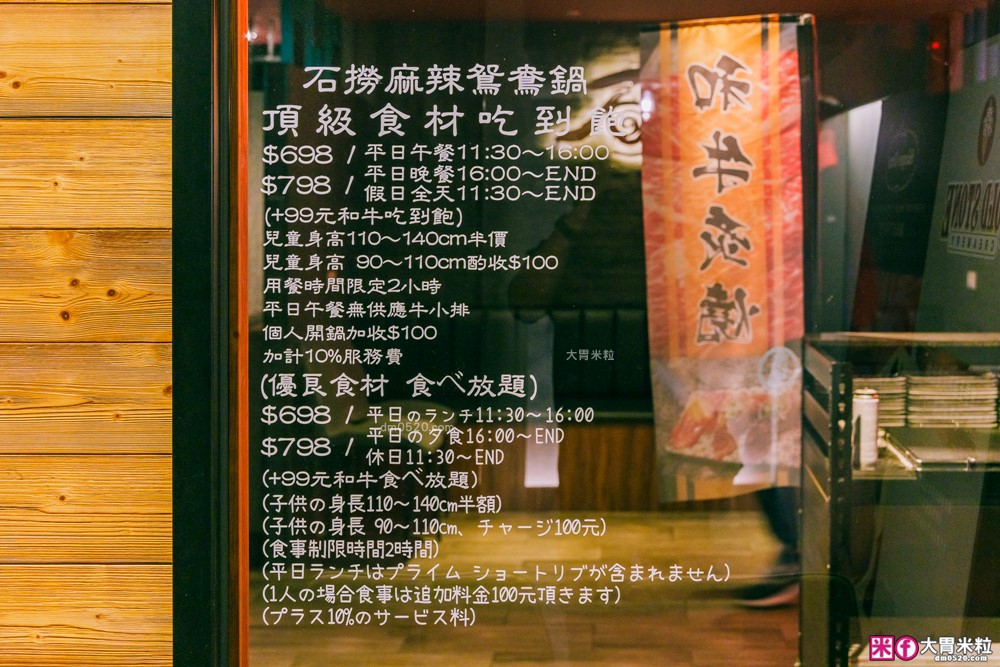 石撈麻辣鴛鴦鍋
頂級食材吃到飽
$698 / 平日午餐11:30～16:00
$798 / 平日晚餐16:00～END
假日全天11:30～END
(+99元和牛吃到飽)
兒童身高110～140cm半價
兒童身高 90～110cm酌收$100
用餐時間限定2小時
平日午餐無供應牛小排
個人開鍋加收$100
加計10%服務費
(優良食材 食べ放題)
$698 / 平日のランチ11:30～16:00
$798 / 平日の夕食16:00～END
休日11:30～END
(+99元和牛食べ放題)
(子供の身長110～140cm半額)
(子供の身長 90～110cm、チャージ100元)
(食事制限時間2時間)
(平日ランチはプライム ショートリブが含まれません)
(1人の場合食事は追加料金100元頂きます)
(プラス10%のサービス料)
和牛炙燒
大胃米粒
dm0520.com
米 f 大胃米粒
dm0520.com